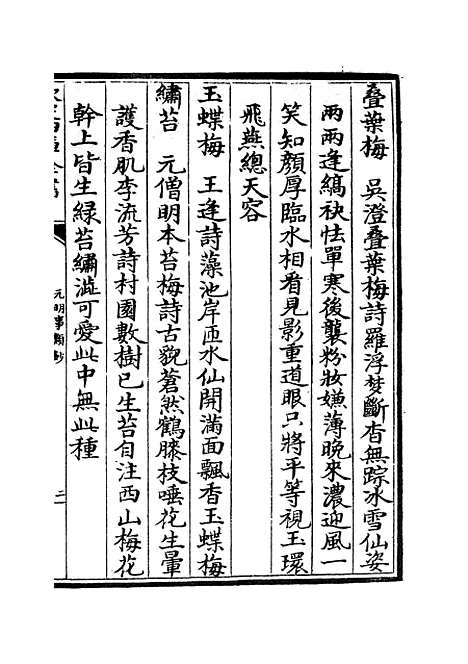 疊葉梅　吳澄疊葉梅詩羅浮夢斷杳無踪冰雪仙姿
兩兩逢縞袂怯單寒後襲粉妝嫌薄晚來濃迎風一
笑知顏厚臨水相看見影重道眼只將平等視玉環
飛燕總天容
玉蝶梅　王逢詩藻池岸匝水仙開滿面飄香玉蝶梅
繡苔　元僧明本苔梅詩古貌蒼然鶴膝枝唾花生暈
護香肌李流芳詩村園數樹已生苔自注西山梅花
幹上皆生緑苔繡澁可愛此中無此種
元明事類鈔
二